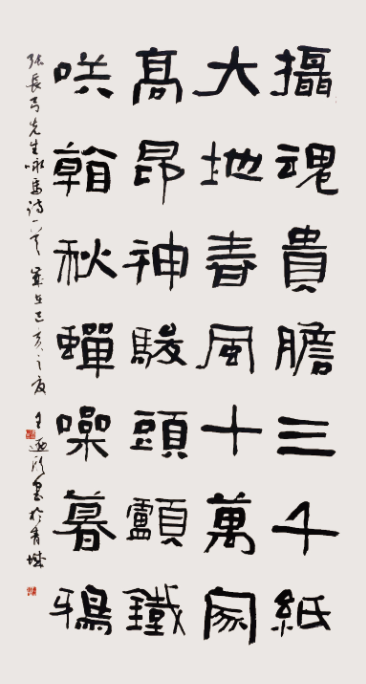 攝魂貴膽三千紙
大地春風十萬家
高昂神駿頭顱鐵
翰秋蟬噪暮鴉
張長弓先生詠馬詩一首 歲在己亥之夏 王書於青城